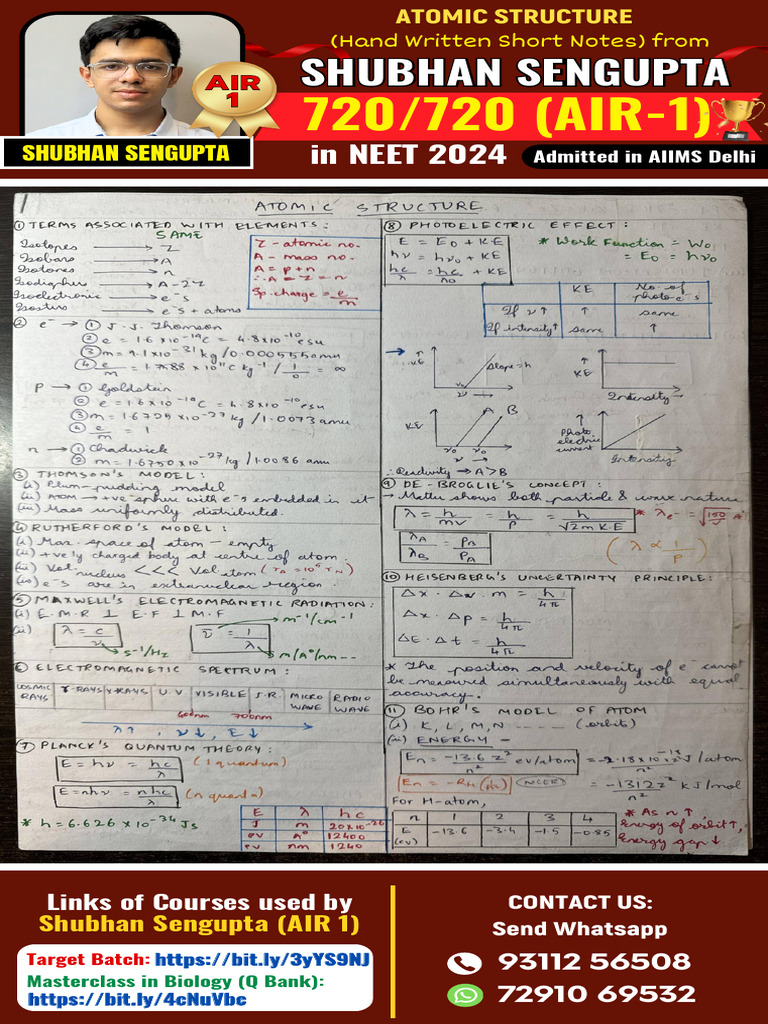 ATOMIC STRUCTURE
(Hand Written Short Notes) from
SHUBHAN SENGUPTA
AIR
1
720/720 (AIR-1)
SHUBHAN SENGUPTA
in NEET 2024
Admitted in AIIMS Delhi
ATOMIC STRUCTURE
① TERMS ASSOCIATED WITH ELEMENTS:
SAME
Isotopes → Z
Isobars → A
Isotones → n
Isodiaphers → A-2Z
Isoelectronic → e⁻s
Isosters → e⁻s + atoms
Z - atomic no.
A - mass no.
A = p+n
∴ A = Z = n
Sp. charge = e/m
② e⁻ → ① J.J. Thomson
② e = 1.6×10⁻¹⁹C = 4.8×10⁻¹⁰ esu
③ m = 9.1×10⁻³¹ kg / 0.000555amu
④ e/m = 1.7588 × 10¹¹ C kg⁻¹ / 1/0 = ∞
P → ① Goldstein
② e = 1.6×10⁻¹⁹C = 4.8×10⁻¹⁰esu
③ m = 1.6725×10⁻²⁷ kg / 1.0073 amu
④ e/m = 1
n → ① Chadwick
② m = 1.6750×10⁻²⁷ kg / 1.0086 amu
③ THOMSON'S MODEL:
(i) Plum-pudding model
(ii) Atom → +ve sphere with e⁻s embedded in it
(iii) Mass uniformly distributed.
④ RUTHERFORD'S MODEL:
(i) Max. space of atom - empty
(ii) +vely charged body at centre of atom.
(iii) Vol. nucleus <<< Vol. atom (r_A = 10⁵ r_N)
(iv) e⁻s are in extranuclear region.
⑤ MAXWELL'S ELECTROMAGNETIC RADIATION:
(i) E.M.R ⊥ E.F ⊥ M.F
(ii) λ = c/ν → s⁻¹/Hz
ν̄ = 1/λ → m⁻¹/cm⁻¹
m/A°/nm---
⑥ ELECTROMAGNETIC SPECTRUM:
COSMIC RAYS γ-RAYS X-RAYS U.V VISIBLE I.R MICRO WAVE RADIO WAVE
400nm 700nm
λ↑, ν↓, E↓
⑦ PLANCK'S QUANTUM THEORY:
E = hν = hc/λ (1 quantum)
E = nhν = nhc/λ (n quanta)
* h = 6.626 × 10⁻³⁴ Js
E λ hc
J m 20×10⁻²⁶
ev A° 12400
ev nm 1240
⑧ PHOTOELECTRIC EFFECT:
E = E₀ + KE
hν = hν₀ + KE
hc/λ = hc/λ₀ + KE
* Work Function = W₀
= E₀ = hν₀
KE No. of photo e⁻s
If ν↑ ↑ same
If intensity↑ same ↑
KE slope = h ν₀ ν →
KE Intensity →
KE A B ν₀ ν₀ ν →
Photo electric current Intensity
∴ Reactivity → A > B
⑨ DE-BROGLIE'S CONCEPT:
→ Matter shows both particle & wave nature
λ = h/mv = h/p = h/√2m K.E
* λe⁻ = √150/V A°
λA/λB = PB/PA
(λ ∝ 1/P)
⑩ HEISENBERG'S UNCERTAINTY PRINCIPLE:
Δx · Δv · m = h/4π
Δx · Δp = h/4π
ΔE · Δt = h/4π
* The position and velocity of e⁻ cannot
be measured simultaneously with equal
accuracy.
⑪ BOHR'S MODEL OF ATOM
(i) K, L, M, N ---- (orbits)
(ii) ENERGY -
En = -13.6 Z²/n² ev/atom = -2.18×10⁻¹⁸ Z²/n² J/atom
En = -RH (1/n²) (NCERT) = -1312 Z²/n² kJ/mol
For H-atom,
n 1 2 3 4
E (ev) -13.6 -3.4 -1.5 -0.85
* As n↑
Energy of orbit↑,
Energy gap↓
Links of Courses used by
Shubhan Sengupta (AIR 1)
Target Batch: https://bit.ly/3yYS9NJ
Masterclass in Biology (Q Bank):
https://bit.ly/4cNuVbc
CONTACT US:
Send Whatsapp
93112 56508
72910 69532